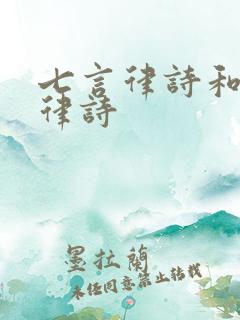 七言律詩和
律詩
墨拉蘭
未經同意禁止轉載